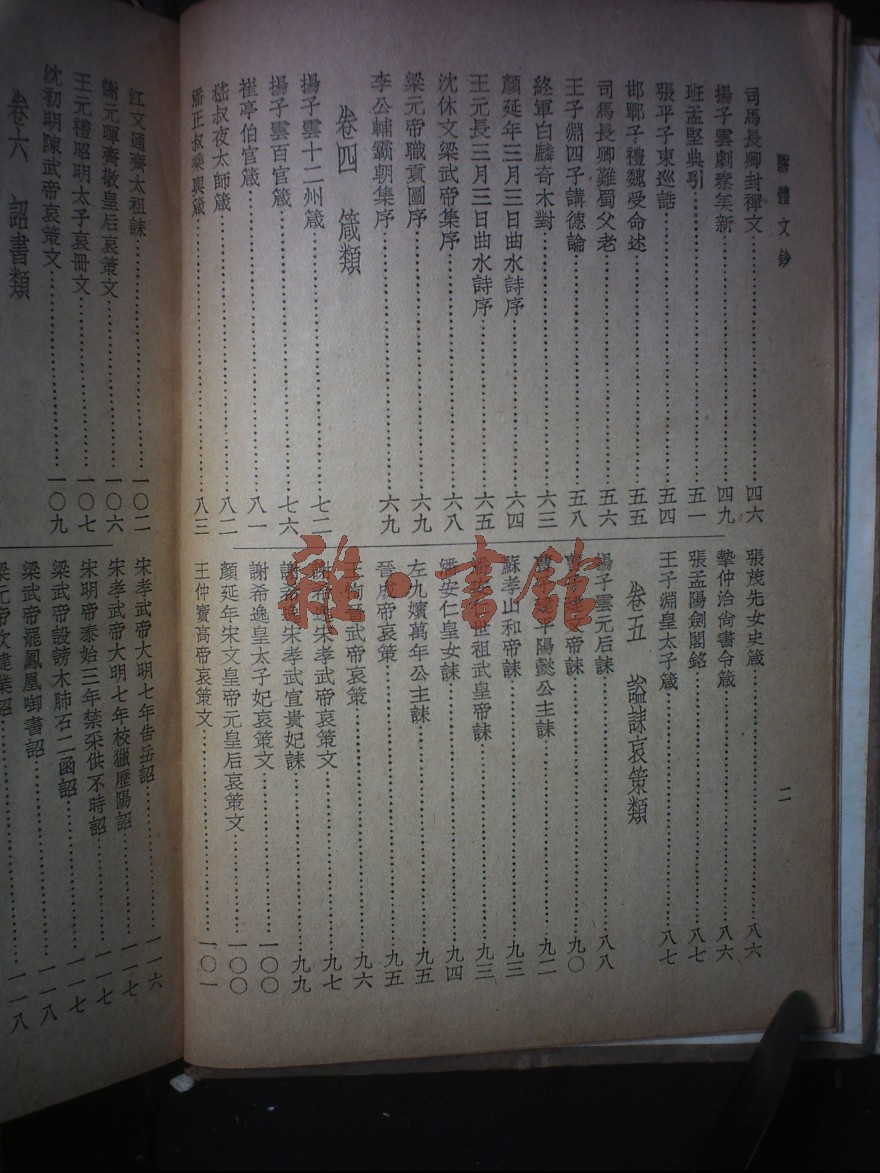 駢體文鈔
二
司馬長卿封禪文 四六
揚子雲劇秦美新 四九
班孟堅典引 五一
張平子東巡誥 五四
邯鄲子禮魏受命述 五五
司馬長卿難蜀父老 五六
王子淵四子講德論 五八
終軍白麟奇木對 六三
顏延年三月三日曲水詩序 六四
王元長三月三日曲水詩序 六五
沈休文梁武帝集序 六八
梁元帝職貢圖序 六九
李公輔霸朝集序 六九
卷四 箴類
揚子雲十二州箴 七二
揚子雲百官箴 七六
崔亭伯官箴 八一
嵇叔夜太師箴 八二
潘正叔乘輿箴 八三
張茂先女史箴 八六
摯仲洽尙書令箴 八六
張孟陽劍閣銘 八七
王子淵皇太子箴 八七
卷五 謚誄哀策類
揚子雲元后誄 八八
帝誄 九〇
平陽懿公主誄 九二
蘇孝山和帝誄 九三
世祖武皇帝誄 九三
潘安仁皇女誄 九四
左九嬪萬年公主誄 九五
晉成帝哀策 九五
王恂晉武帝哀策 九六
謝希逸宋孝武帝哀策文 九七
謝希逸宋孝武宣貴妃誄 九九
謝希逸皇太子妃哀策文 一〇〇
顏延年宋文皇帝元皇后哀策文 一〇〇
王仲寶高帝哀策文 一〇一
江文通齊太祖誄 一〇二
謝元暉齊敬皇后哀策文 一〇六
王元禮昭明太子哀冊文 一〇七
沈初明陳武帝哀策文 一〇九
卷六 詔書類
宋孝武帝大明七年告岳詔 一一六
宋孝武帝大明七年校獵歷陽詔 一一七
宋明帝泰始三年禁采供不時詔 一一七
梁武帝設謗木肺石二函詔 一一七
梁武帝罷鳳凰啣書詔 一一八
梁元帝改建業詔 一一八
雜·書館